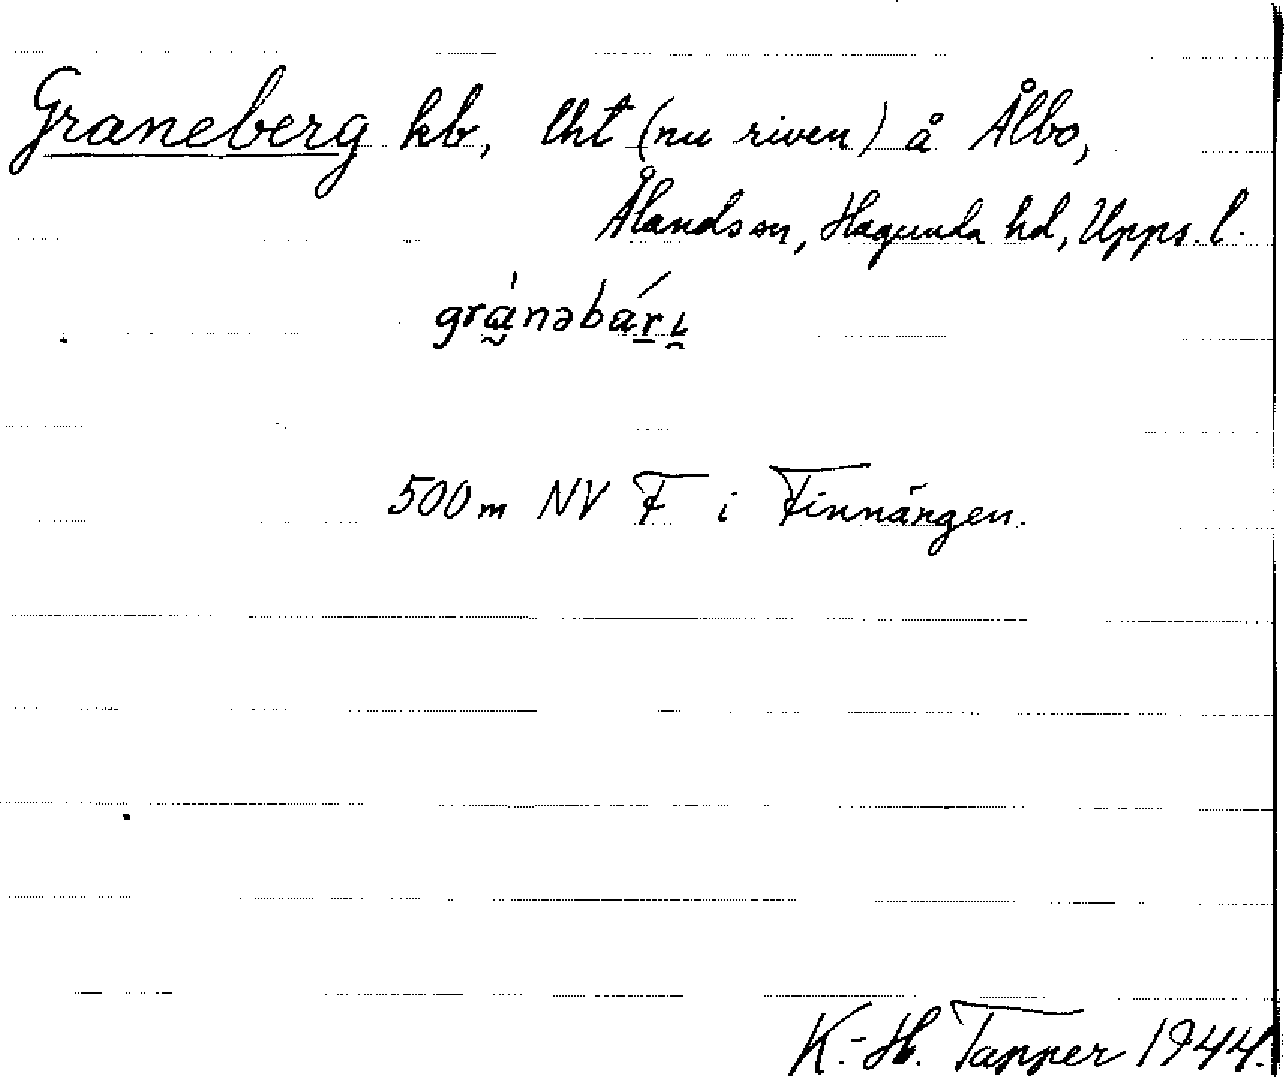 Graneberg kb, lht (nu riven) å Ålbo,
Ålands sn, Hagunda hd, Upps. l.
500 m NV F i Finnängen.
K.-H. Tapper 1944.